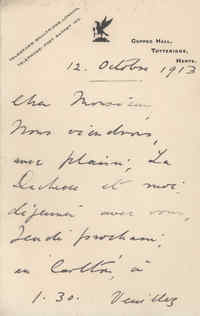 TELEGRAMS, TOTTERIDGE, LONDON.
TELEPHONE, POST BARNET
COPPED HALL,
TOTTERIDGE,
HERTS.
12. Octobre 1913
Cher Monsieur,
Nous viendrons,
avec plaisir, La
Duchesse et moi
déjeuner avec vous,
Jeudi prochain,
au Carlton, à
1.30. Veuillez